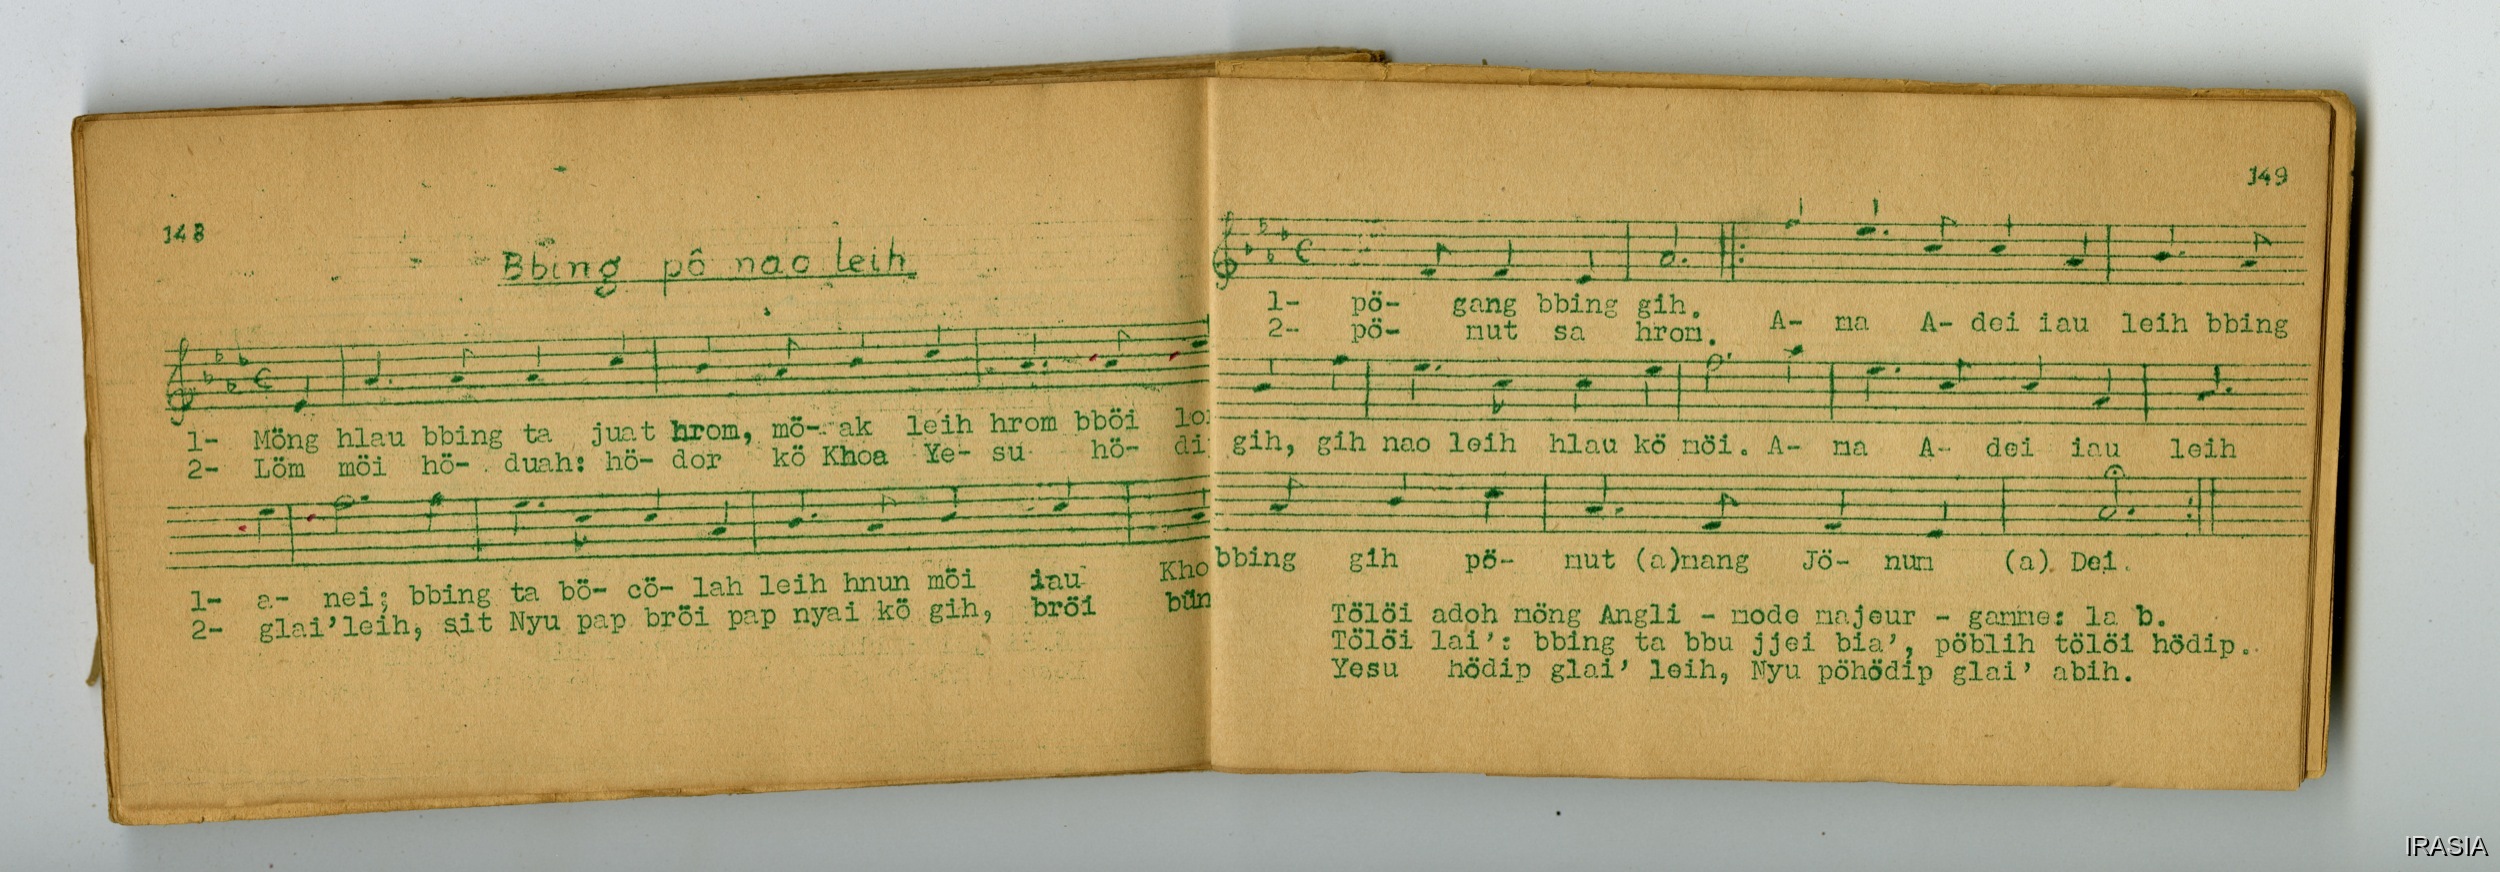 148
Bbing pô nao leih
1- Möng hlau bbing ta juat hrom, mö- ak leih hrom bböi
2- Löm möi hö- duah: hö- dor kö Khoa Ye- su hö-
1- a- nei; bbing ta bö- cö- lah leih hnun möi iau
2- glai'leih, sit Nyu pap bröi pap nyai kö gih, bröi
149
1- pö- gang bbing gih.
2- pö- nut sa hrom.
A- ma A- dei iau leih bbing
gih, gih nao leih hlau kö möi. A- ma A- dei iau leih
bbing gih pö- nut (a)nang Jö- num (a) Dei.
Tölöi adoh nöng Angli - mode majeur - gamme: la b.
Tölöi lai': bbing ta bbu jjei bia', pöblih tölöi hödip.
Yesu hödip glai' leih, Nyu pöhödip glai' abih.
IRASIA